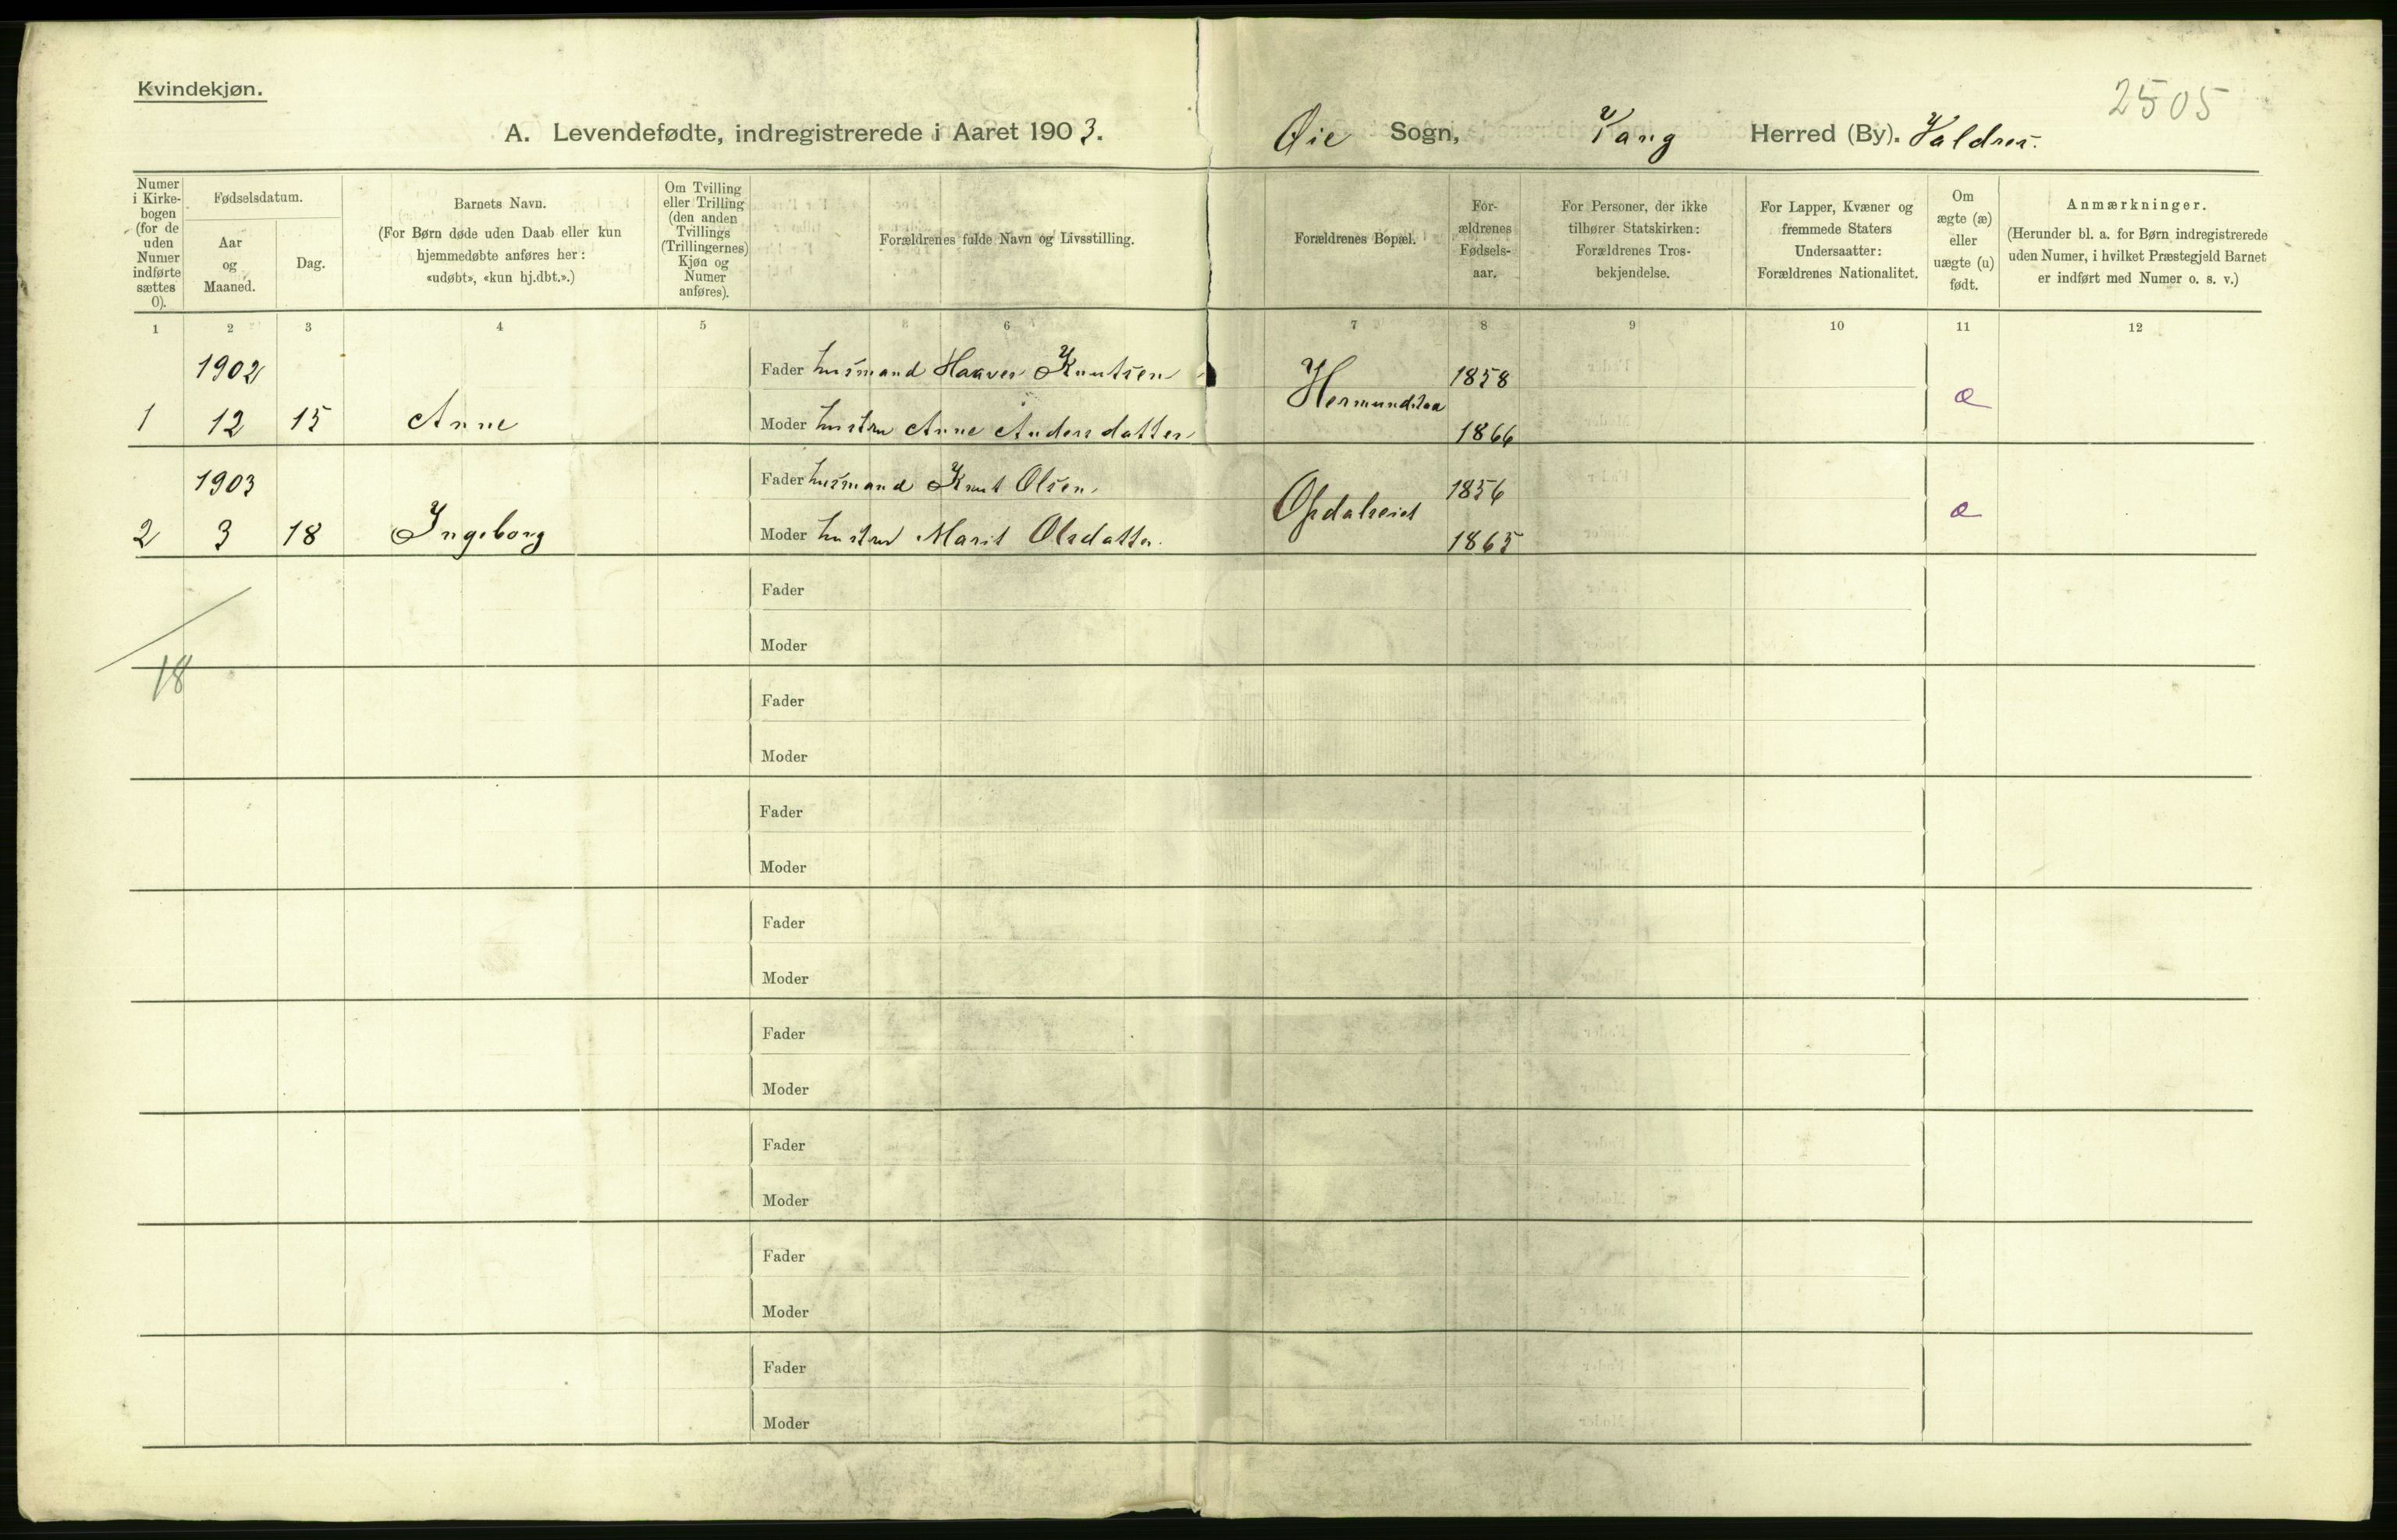 Kvindekjøn.
2505
A. Levendefødte, indregistrerede i Aaret 1903. Øie Sogn, Vang Herred (By). Valdres.
Numer i Kirke-bogen (for de uden Numer indførte sættes 0).
Fødselsdatum.
Aar og Maaned.
Dag.
Barnets Navn.
(For Børn døde uden Daab eller kun hjemmedøbte anføres her: «udøbt», «kun hj.dbt.».)
Om Tvilling eller Trilling (den anden Tvillings (Trillingernes) Kjøn og Numer anføres).
Forældrenes fulde Navn og Livsstilling.
Forældrenes Bopæl.
For-ældrenes Fødsels-aar.
For Personer, der ikke tilhører Statskirken: Forældrenes Tros-bekjendelse.
For Lapper, Kvæner og fremmede Staters Undersaatter: Forældrenes Nationalitet.
Om ægte (æ) eller uægte (u) født.
Anmærkninger.
(Herunder bl. a. for Børn indregistrerede uden Numer, i hvilket Præstegjeld Barnet er indført med Numer o. s. v.)
1 2 3 4 5 6 7 8 9 10 11 12
1902 Fader husmand Haaver Knutsen Hermundstaa 1858 æ
1 12 15 Anne Moder hustru Anne Andersdatter 1866
1903 Fader husmand Knut Olsen 1856 æ
2 3 18 Ingeborg Moder hustru Marit Olsdatter. 1865
Fader
Moder
18
Fader
Moder
Fader
Moder
Fader
Moder
Fader
Moder
Fader
Moder
Fader
Moder
Fader
Moder